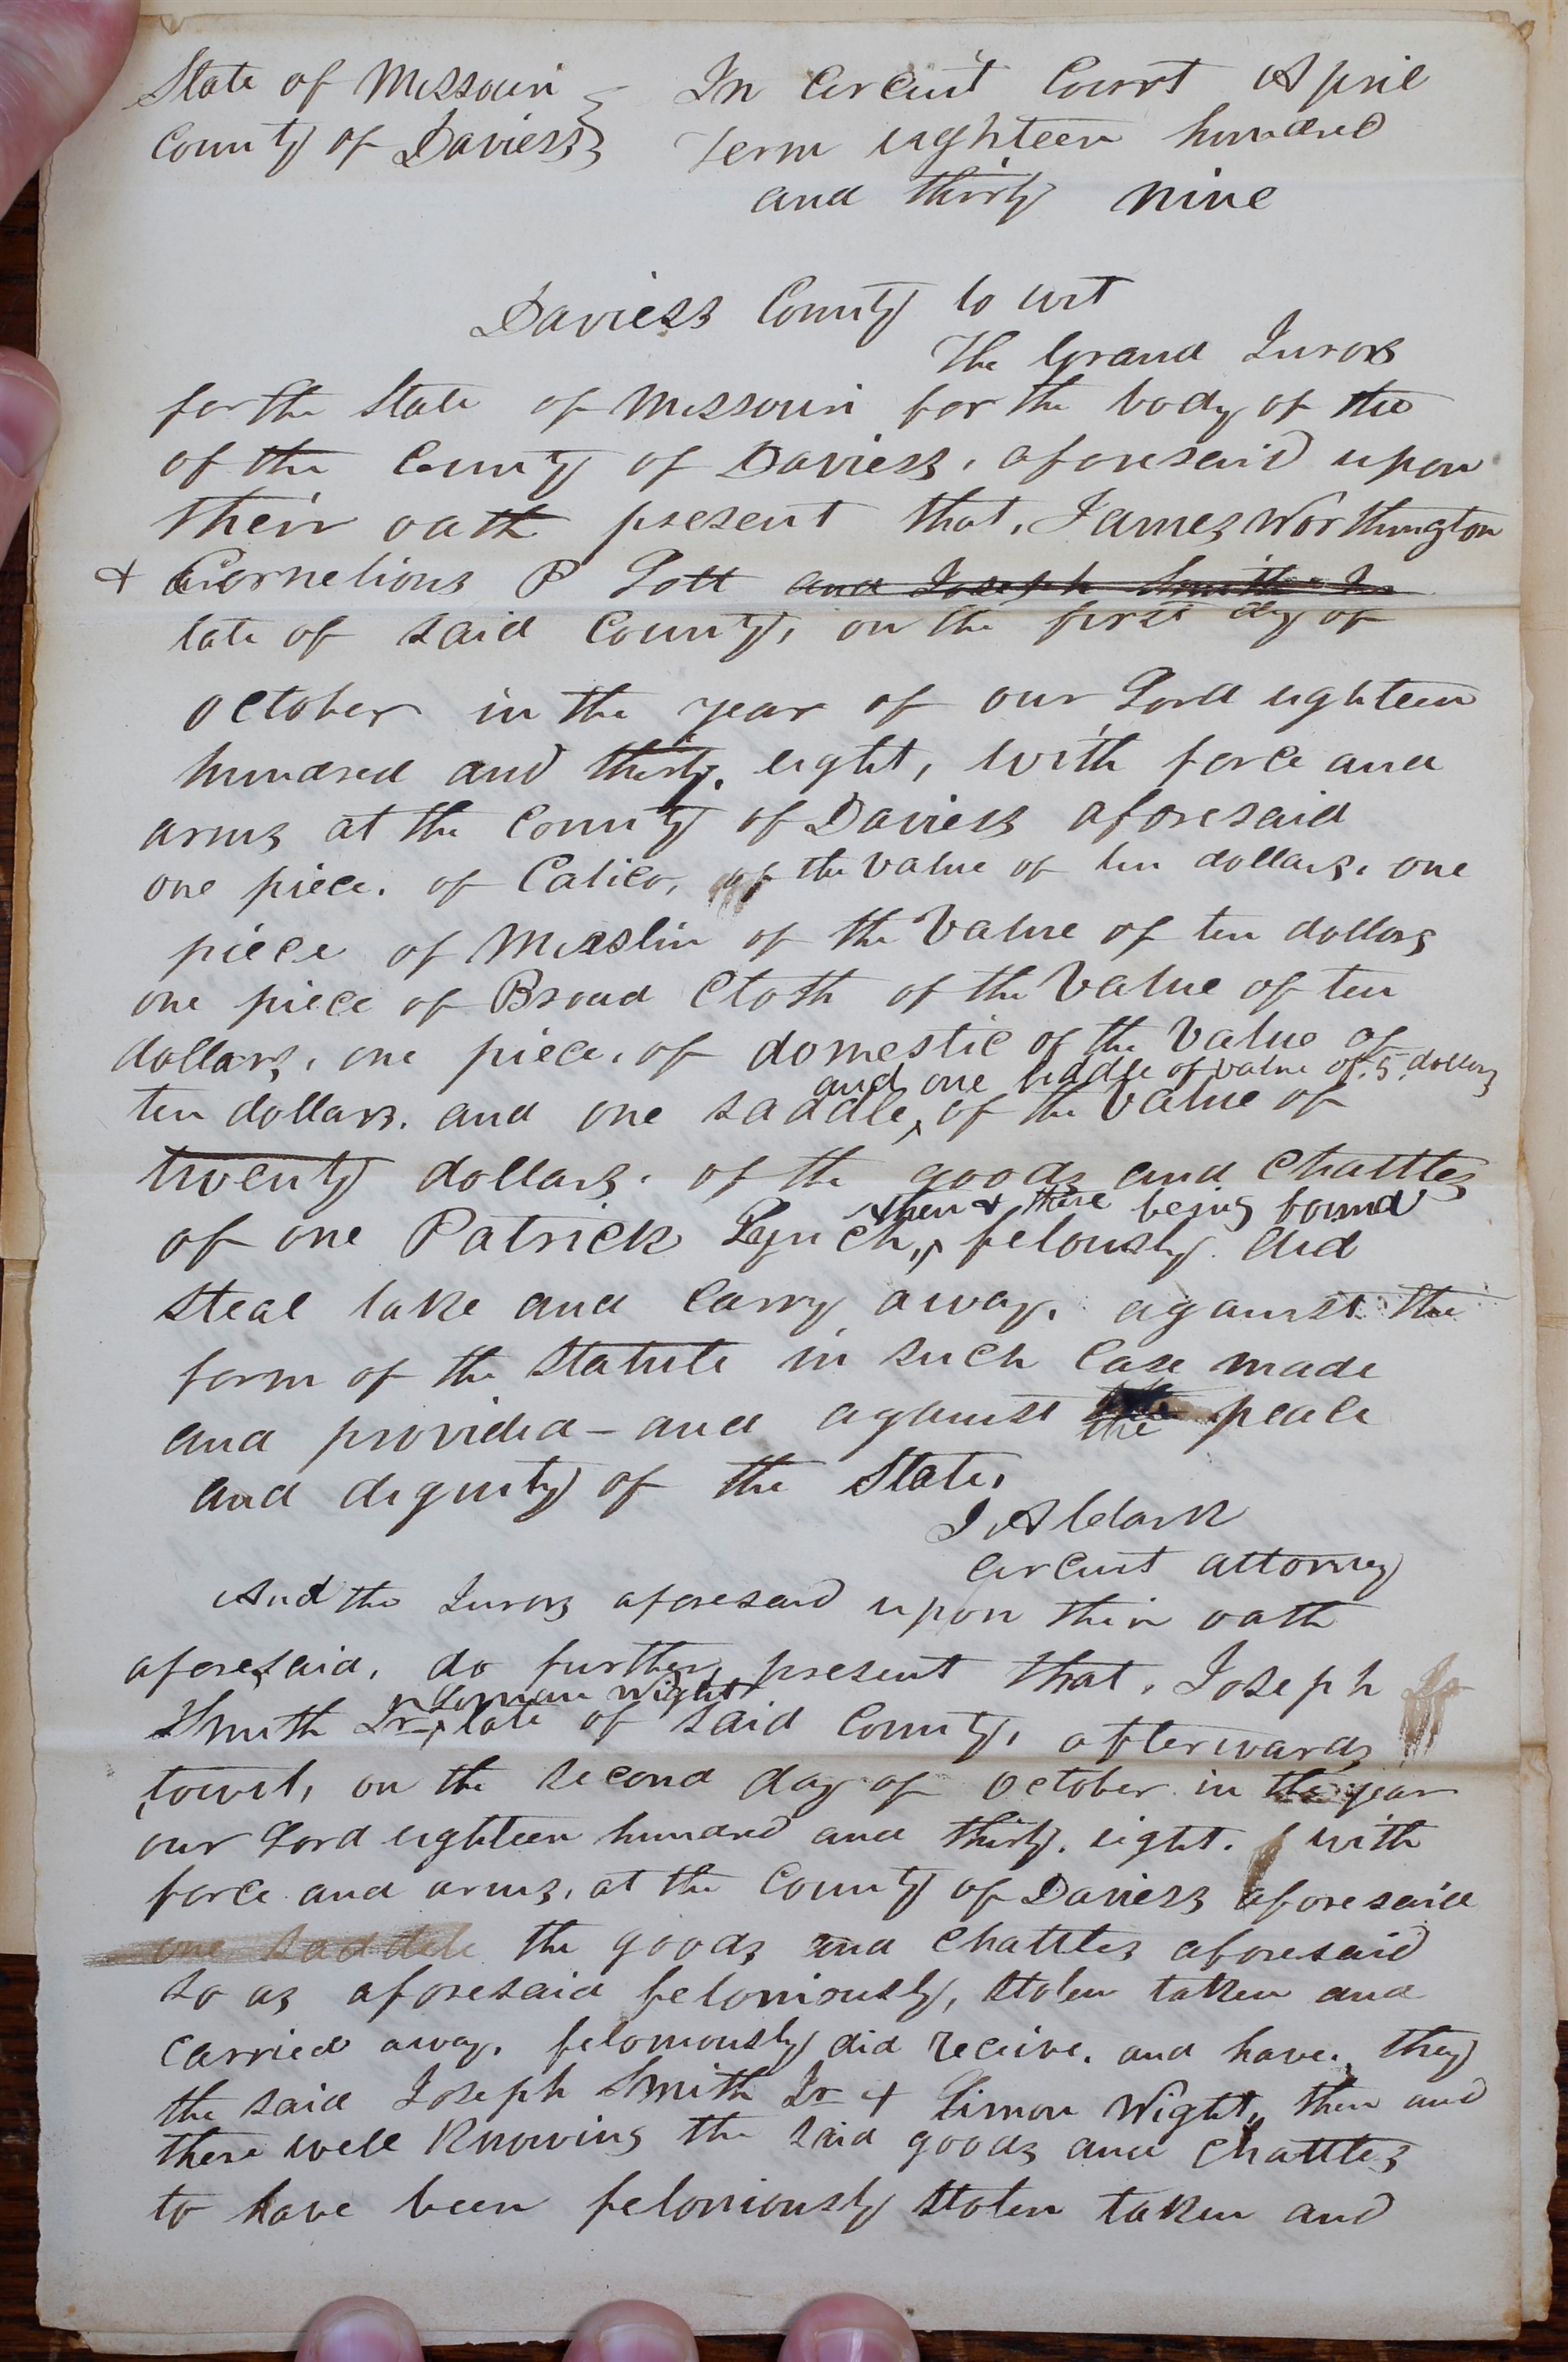 State of Missouri } In Circuit Court April
County of Daviess } Term eighteen hundred
and thirty nine
Daviess County to wit
The Grand Jurors
for the State of Missouri for the body of the
of the County of Daviess, aforesaid upon
their oath present that, James Worthington
& Cornelious P Lott and Joseph Smith Jr
late of said County, on the first day of
October in the year of our Lord eighteen
hundred and thirty, eight, with force and
arms at the County of Daviess aforesaid
one piece. of Calico, of the value of ten dollars. one
piece of Muslin of the Value of ten dollars
one piece of Broad Cloth of the Value of ten
dollars, one piece. of domestic of the Value of
and one briddle of value of. 5. dollars
ten dollars. and one saddle, of the Value of
twenty dollars. of the goods and Chattles
then & there being found
of one Patrick Lynch,, felously did
steal take and carry away. against the
form of the Statute in such Case made
and provided – and against the peace
and dignity of the State.
J A Clark
Circuit attorney
And the Jurors aforesaid upon their oath
aforesaid, do further, present that, Joseph
& Lyman Wight
Smith Jr, late of said County, afterwards
towit, on the second day of October in the year
our Lord eighteen hundred and thirty. eight. with
force and arms, at the County of Daviess aforesaid
one saddle the goods and Chattles aforesaid
so as aforesaid feloniously, stolen taken and
carried away. feloniously did receive. and have, they
the said Joseph Smith Jr & Limon Wight, then and
there well Knowing the said goods and Chattles
to have been feloniously stolen taken and